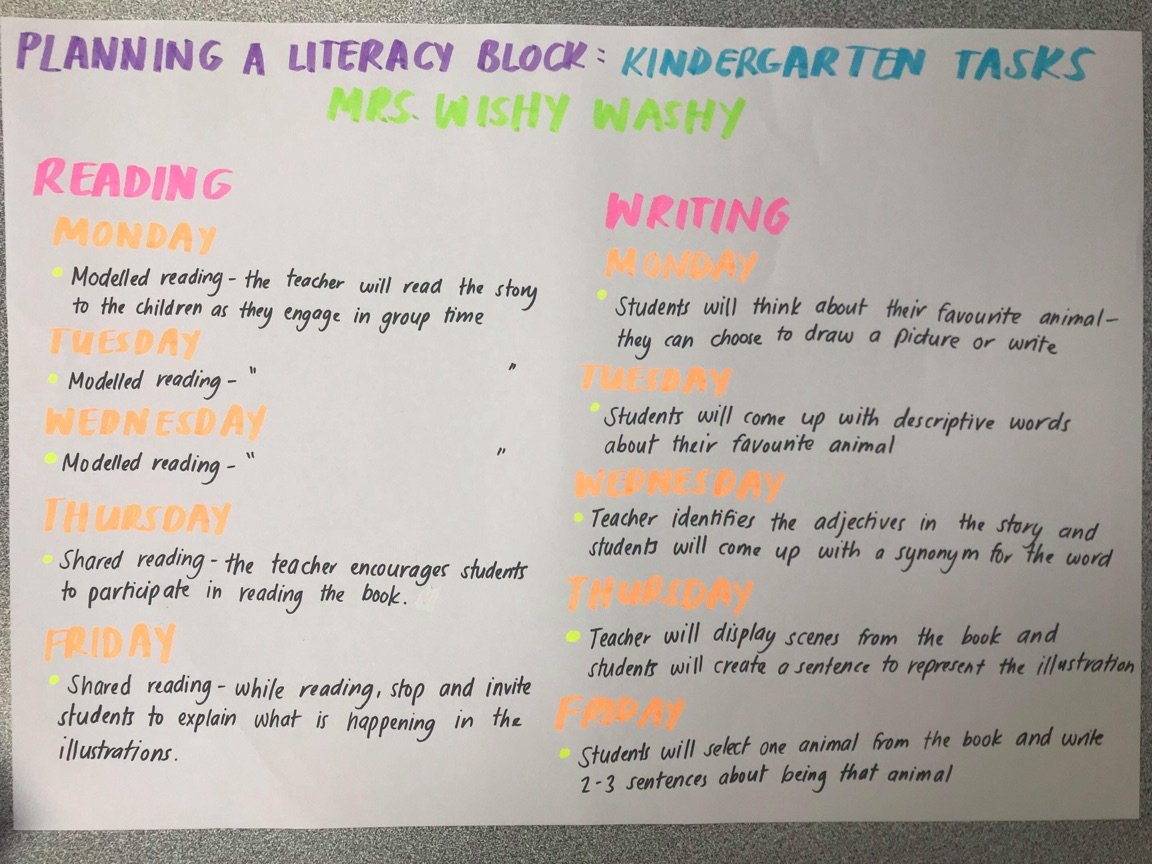 PLANNING A LITERACY BLOCK: KINDERGARTEN TASKS
MRS. WISHY WASHY
READING
MONDAY
• Modelled reading - the teacher will read the story
to the children as they engage in group time
TUESDAY
• Modelled reading - " "
WEDNESDAY
• Modelled reading - " "
THURSDAY
• Shared reading - the teacher encourages students
to participate in reading the book.
FRIDAY
• Shared reading - while reading, stop and invite
students to explain what is happening in the
illustrations.
WRITING
MONDAY
• Students will think about their favourite animal-
they can choose to draw a picture or write
TUESDAY
• Students will come up with descriptive words
about their favourite animal
WEDNESDAY
• Teacher identifies the adjectives in the story and
students will come up with a synonym for the word
THURSDAY
• Teacher will display scenes from the book and
students will create a sentence to represent the illustration
FRIDAY
• Students will select one animal from the book and write
2-3 sentences about being that animal